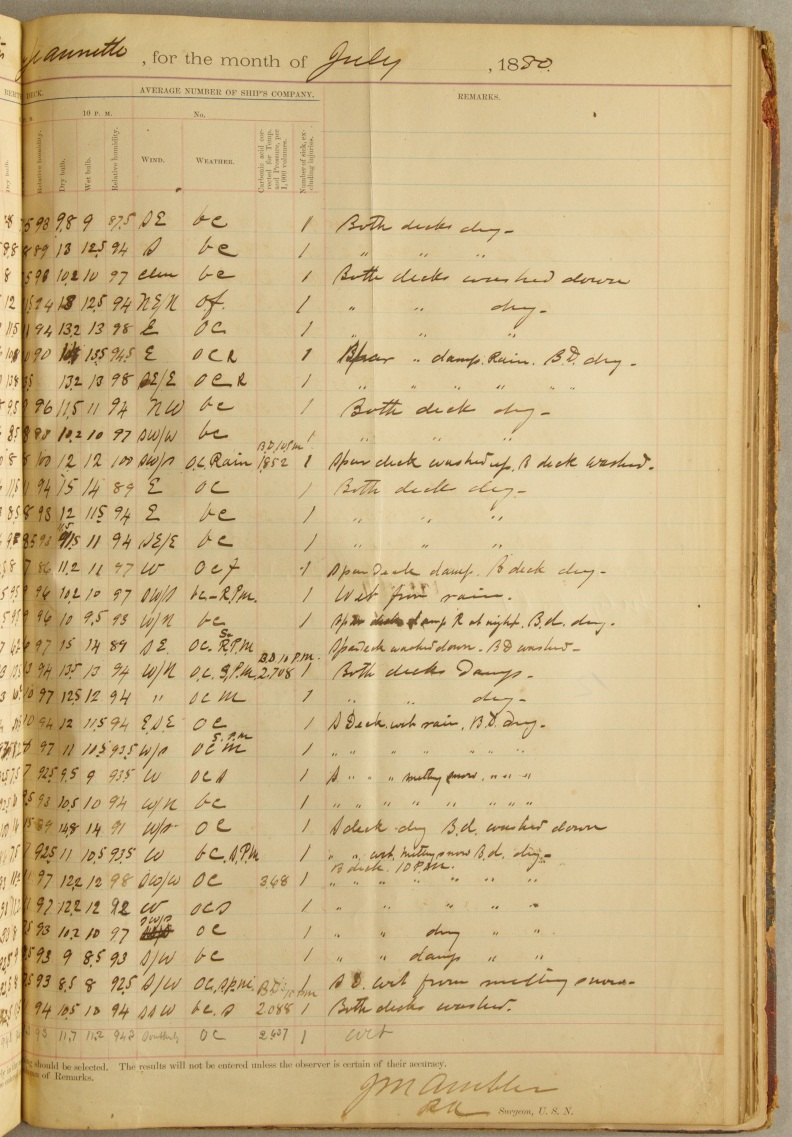 Jeannette, for the month of July, 1880.
DECK. AVERAGE NUMBER OF SHIP'S COMPANY. REMARKS.
10 P. M. No.
Dry bulb. Relative humidity. Dry bulb. Wet bulb. Relative humidity. WIND. WEATHER. Carbonic acid corrected for Temp. and Pressure, per 1,000 volumes. Number of sick, excluding injuries.
98 9.8 9 87.5 SE bc 1 Both decks dry-
89 13 12.5 94 S bc 1 " " "
98 10.2 10 97 bc 1 Both decks washed down
94 13 12.5 94 NE/N of. 1 " " dry-
94 13.2 13 98 E oc 1 " " "
90 13.5 94.5 E ocR 1 Spar " damp. Rain. B.D. dry-
13.2 13 98 SE/E ocR 1 " " " " " "
96 11.5 11 94 NW bc 1 Both deck dry-
10.2 10 97 SW/W bc 1 " " "
B.D. 10 P.M.
100 12 12 100 SW/S o.c. Rain 1.852 1 Spar deck washed up. B deck washed.
94 15 14 89 E oc 1 Both deck dry-
98 12 11.5 94 E bc 1 " " "
11.5 11 94 SE/E bc 1 " " "
86 11.2 11 97 W ocf 1 Spar Deck damp. B deck dry-
96 10.2 10 97 SW/S bc-R.P.M. 1 Wet from rain.
96 10 9.5 93 W/N bc 1 Spar deck damp R at night. B.d. dry.
97 15 14 89 SE. oc. R.P.M Spar deck washed down. BD washed-
B.D. 10 P.M.
94 13.5 13 94 W/N o.c. S.P.M. 2.708 1 Both decks Damp-
97 12.5 12 94 " ocm 1 " " dry-
94 12 11.5 94 E.S.E oc 1 S Deck. wet rain, B.D. dry-
S.P.M
97 11 10.5 93.5 W/S ocm 1 " " " " " " "
92.5 9.5 9 93.5 W ocs 1 S " " " melting snow. " " "
93 10.5 10 94 W/N bc 1 " " " " " " " "
89 14.8 14 91 W/S oc 1 S deck dry B.d. washed down
92.5 11 10.5 93.5 W bc. S.P.M 1 " " wet, melting snow B.d. dry-
B deck. 10 P.M.
97 12.2 12 98 SW/W oc 3.48 1 " " " " " " "
97 12.2 12 92 W ocs 1 " " " " "
SW/S
93 10.2 10 97 oc 1 " " dry " "
93 9 8.5 93 S/W bc 1 " " damp " "
93 8.5 8 92.5 S/W oc, S.P.M. 1 S D. wet from melting snow-
B.D. 10 P.M
94 10.5 10 94 SSW bc. S 2.088 1 Both decks washed.
93 11.7 11.2 94.2 Southerly oc 2.437 1 wet
should be selected. The results will not be entered unless the observer is certain of their accuracy.
of Remarks.
J M Ambler
P.A. Surgeon, U. S. N.